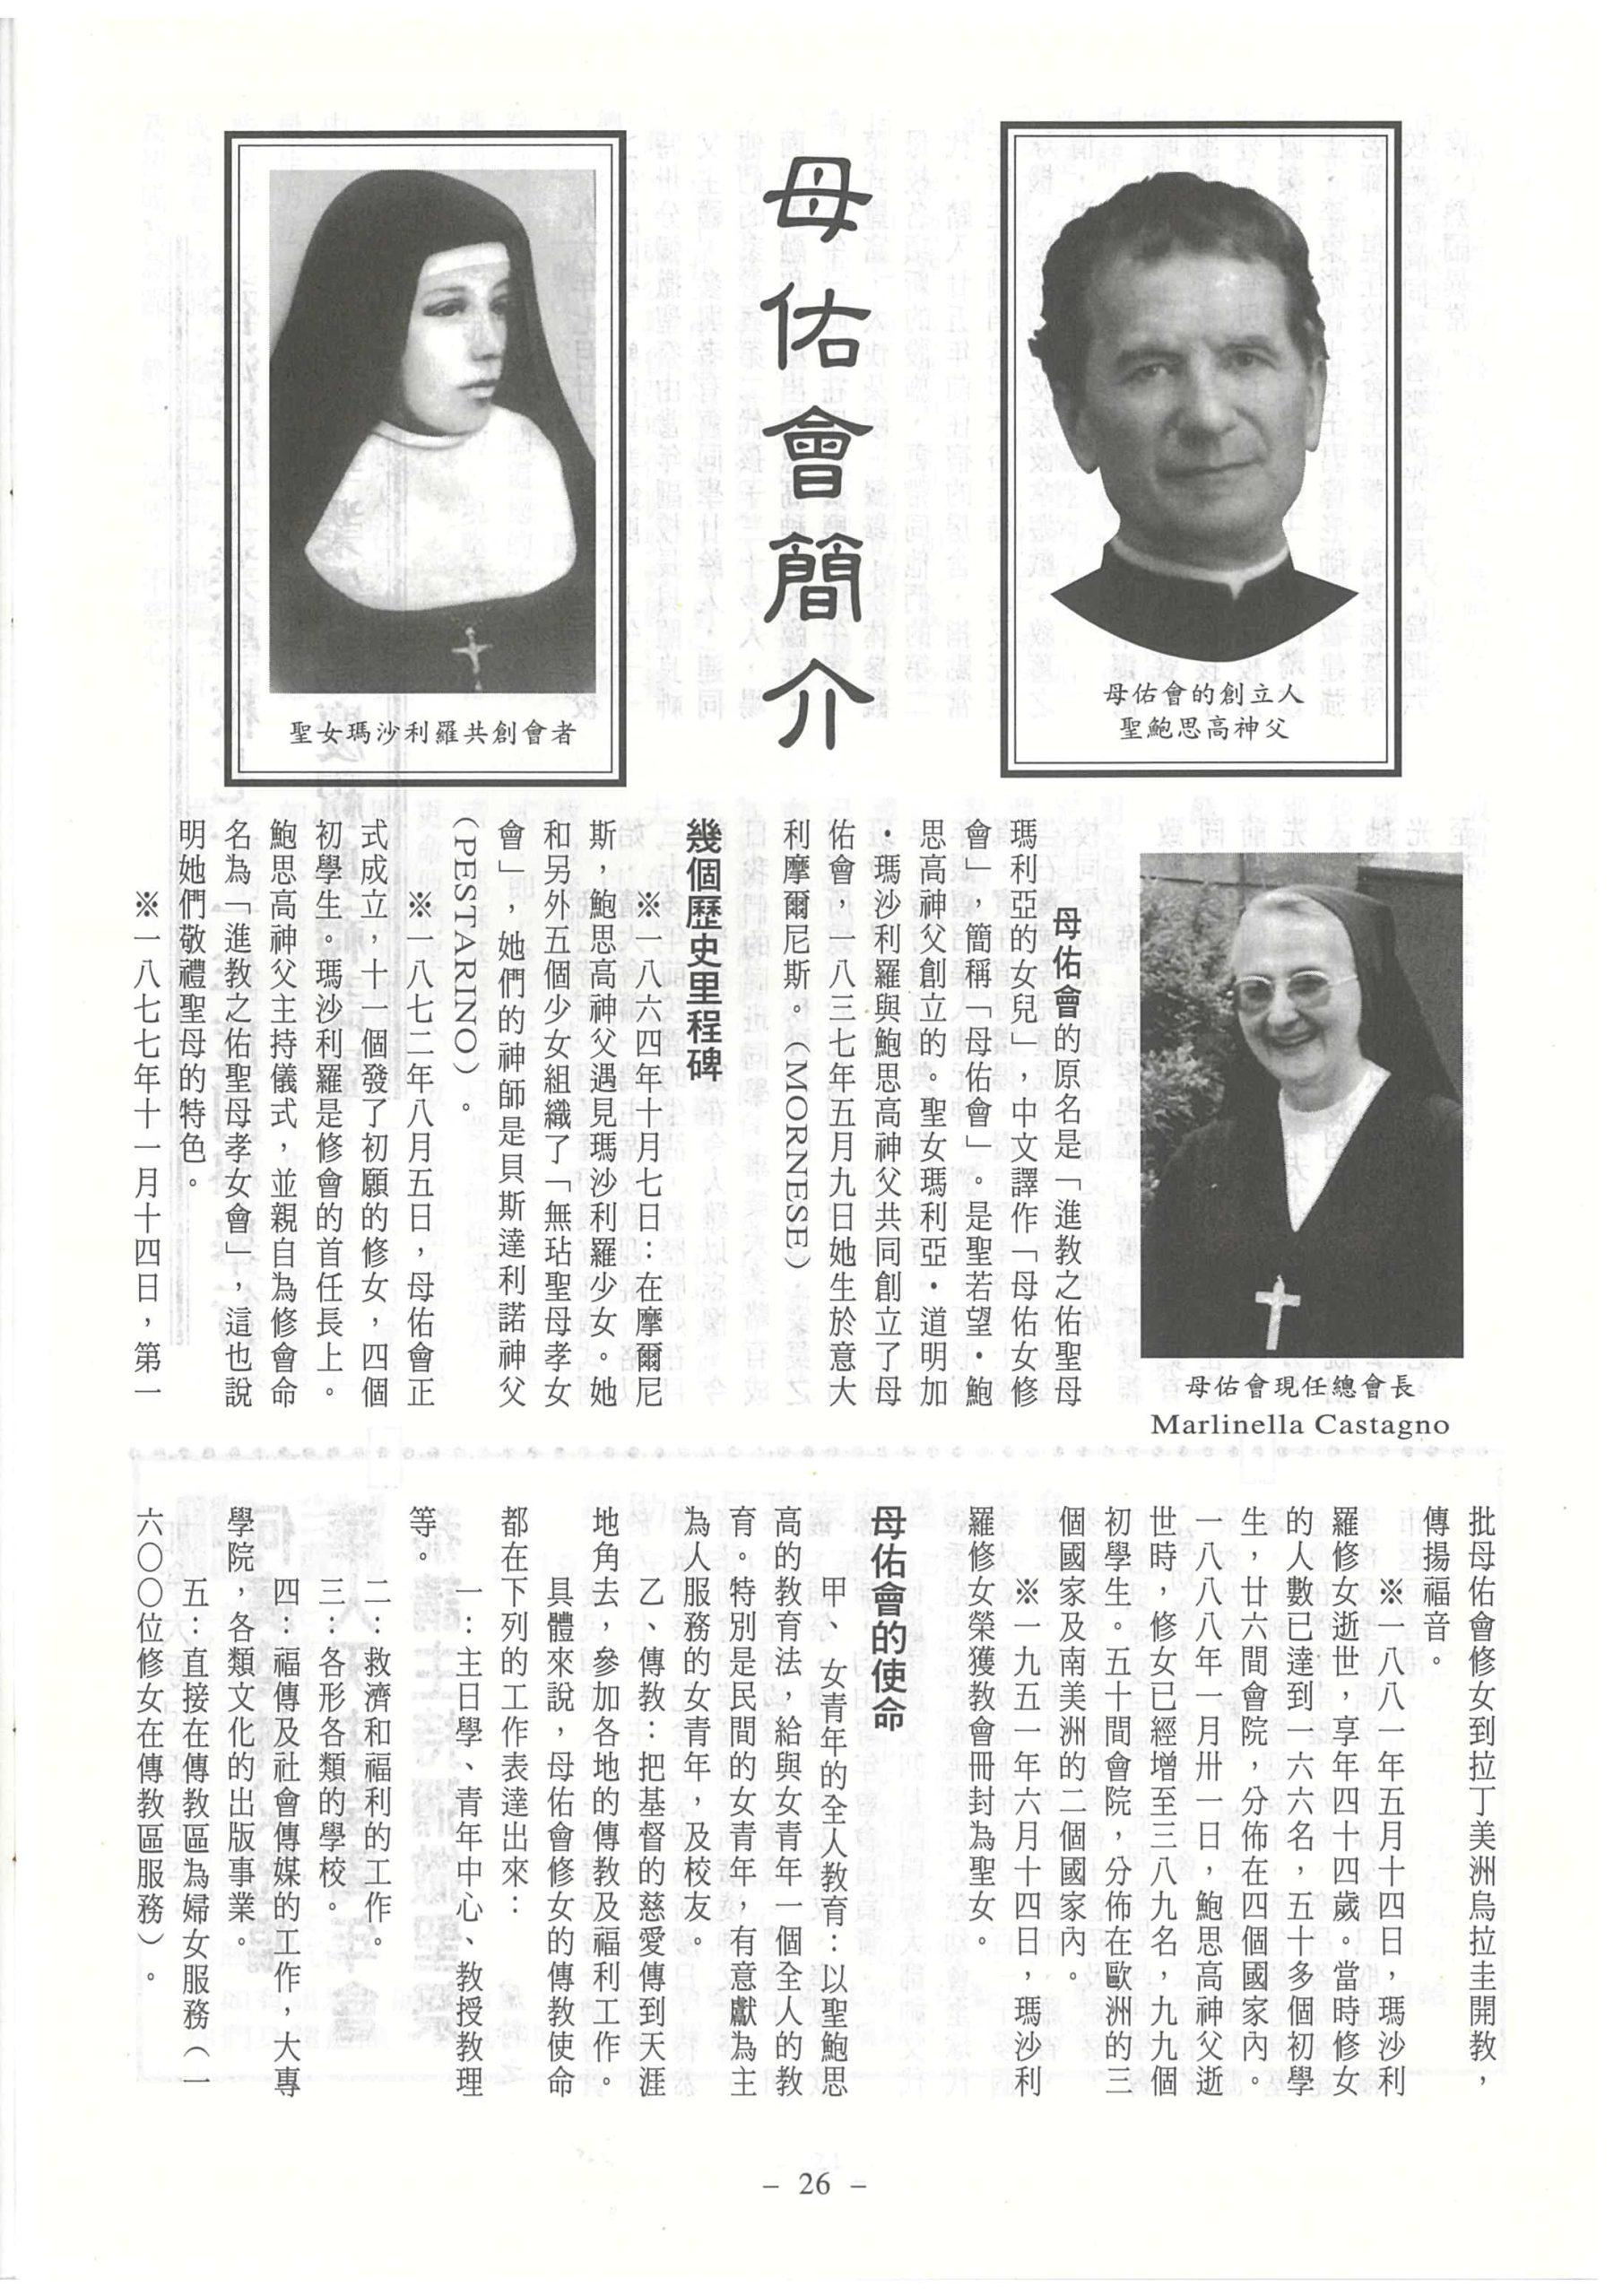 母佑會簡介
母佑會的創立人
聖鮑思高神父
聖女瑪沙利羅共創會者
母佑會現任總會長
Marlinella Castagno
母佑會的原名是「進教之佑聖母
瑪利亞的女兒」，中文譯作「母佑女修
會」，簡稱「母佑會」。是聖若望・鮑
思高神父創立的。聖女瑪利亞・道明加
・瑪沙利羅與鮑思高神父共同創立了母
佑會，一八三七年五月九日她生於意大
利摩爾尼斯。（MORNESE）
幾個歷史里程碑
※一八六四年十月七日：在摩爾尼
斯，鮑思高神父遇見瑪沙利羅少女。她
和另外五個少女組織了「無玷聖母孝女
會」，她們的神師是貝斯達利諾神父
（PESTARINO）。
※一八七二年八月五日，母佑會正
式成立，十一個發了初願的修女，四個
初學生。瑪沙利羅是修會的首任長上。
鮑思高神父主持儀式，並親自為修會命
名為「進教之佑聖母孝女會」，這也說
明她們敬禮聖母的特色。
※一八七七年十一月十四日，第一
批母佑會修女到拉丁美洲烏拉圭開教，
傳揚福音。
※一八八一年五月十四日，瑪沙利
羅修女逝世，享年四十四歲。當時修女
的人數已達到一六六名，五十多個初學
生，廿六間會院，分佈在四個國家內。
一八八八年一月卅一日，鮑思高神父逝
世時，修女已經增至三八九名，九九個
初學生。五十間會院，分佈在歐洲的三
個國家及南美洲的二個國家內。
※一九五一年六月十四日，瑪沙利
羅修女榮獲教會冊封為聖女。
母佑會的使命
甲、女青年的全人教育：以聖鮑思
高的教育法，給與女青年一個全人的教
育。特別是民間的女青年，有意獻為主
為人服務的女青年，及校友。
乙、傳教：把基督的慈愛傳到天涯
地角去，參加各地的傳教及福利工作。
具體來說，母佑會修女的傳教使命
都在下列的工作表達出來：
一：主日學、青年中心、教授教理
等。
二：救濟和福利的工作。
三：各形各類的學校。
四：福傳及社會傳媒的工作，大專
學院，各類文化的出版事業。
五：直接在傳教區為婦女服務（一
六〇〇位修女在傳教區服務）。
– 26 –